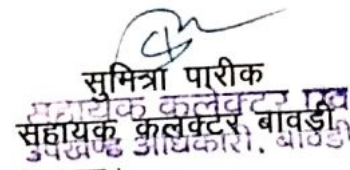 सुमित्रा पारीक
सहायक कलेक्टर एवं
सहायक कलेक्टर बावड़ी
उपखण्ड अधिकारी, बावड़ी